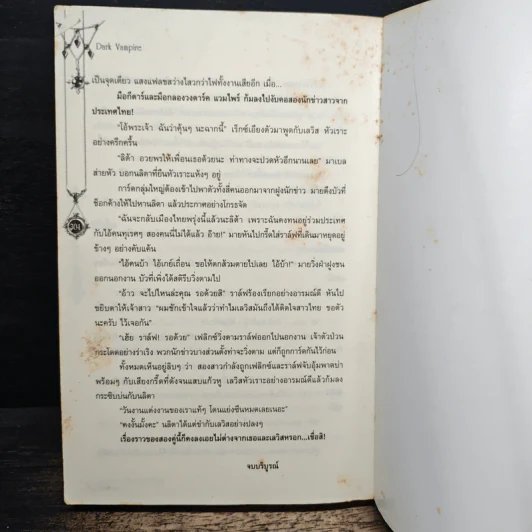 Dark Vampire
เป็นจุดเดียว แสงแฟลชสว่างไสวกว่าไฟทั้งงานเสียอีก เมื่อ...
มือกีตาร์และมือกลองวงดาร์ค แวมไพร์ ก้มลงไปงับคอสองนักข่าวสาวจาก
ประเทศไทย!
“โอ้พระเจ้า ฉันว่าคุ้นๆ นะฉากนี้” เร็กซ์เอียงตัวมาพูดกับเลวิส หัวเราะ
อย่างครึกครื้น
“ลิต้า อวยพรให้เพื่อนเธอด้วยนะ ท่าทางจะปวดหัวอีกนานเลย” มาเบล
ส่ายหัว บอกนลิตาที่ยืนหัวเราะแห้งๆ อยู่
การ์ดกลุ่มใหญ่ต้องเข้าไปพาตัวทั้งสี่คนออกมาจากฝูงนักข่าว มายดึงบัวที่
ช็อกค้างให้ไปหานลิตา แล้วประกาศอย่างโกรธจัด
“ฉันจะกลับเมืองไทยพรุ่งนี้แล้วนะลิต้า เพราะฉันคงทนอยู่ร่วมประเทศ
กับไอ้คนทุเรศๆ สองคนนี้ไม่ได้แล้ว อ๊าย!” มายหันไปกรี๊ดใส่ราล์ฟที่เดินมาหยุดอยู่
ข้างๆ อย่างคับแค้น
“ไอ้คนบ้า ไอ้เกย์เถื่อน ขอให้ตกส้วมตายไปเลย ไอ้บ้า!” มายวิ่งฝ่าฝูงชน
ออกนอกงาน บัวที่เพิ่งได้สติรีบวิ่งตามไป
“อ้าว จะไปไหนล่ะคุณ รอด้วยสิ” ราล์ฟร้องเรียกอย่างอารมณ์ดี หันไป
ขยิบตาให้เจ้าสาว “ผมชักเข้าใจแล้วว่าทำไมเลวิสมันถึงได้ติดใจสาวไทย ขอตัว
นะครับ ไว้เจอกัน”
“เฮ้ย ราล์ฟ! รอด้วย” เฟลิกซ์วิ่งตามราล์ฟออกไปนอกงาน เจ้าตัวป่วน
กระโดดอย่างร่าเริง พวกนักข่าวบางส่วนตั้งท่าจะวิ่งตาม แต่ก็ถูกการ์ดกันไว้ก่อน
ทั้งหมดเห็นอยู่ลิบๆ ว่า สองสาวกำลังถูกเฟลิกซ์และราล์ฟจับอุ้มพาดบ่า
พร้อมๆ กับเสียงกรี๊ดที่ดังจนแสบแก้วหู เลวิสหัวเราะอย่างอารมณ์ดีแล้วก้มลง
กระซิบบ่นกับนลิตา
“วันงานแต่งงานของเราแท้ๆ โดนแย่งซีนหมดเลยเนอะ”
“คงงั้นมั้งคะ” นลิตาได้แต่ขำกับเลวิสอย่างปลงๆ
เรื่องราวของสองคู่นี้ก็คงลงเอยไม่ต่างจากเธอและเลวิสหรอก...เชื่อสิ!
จบบริบูรณ์